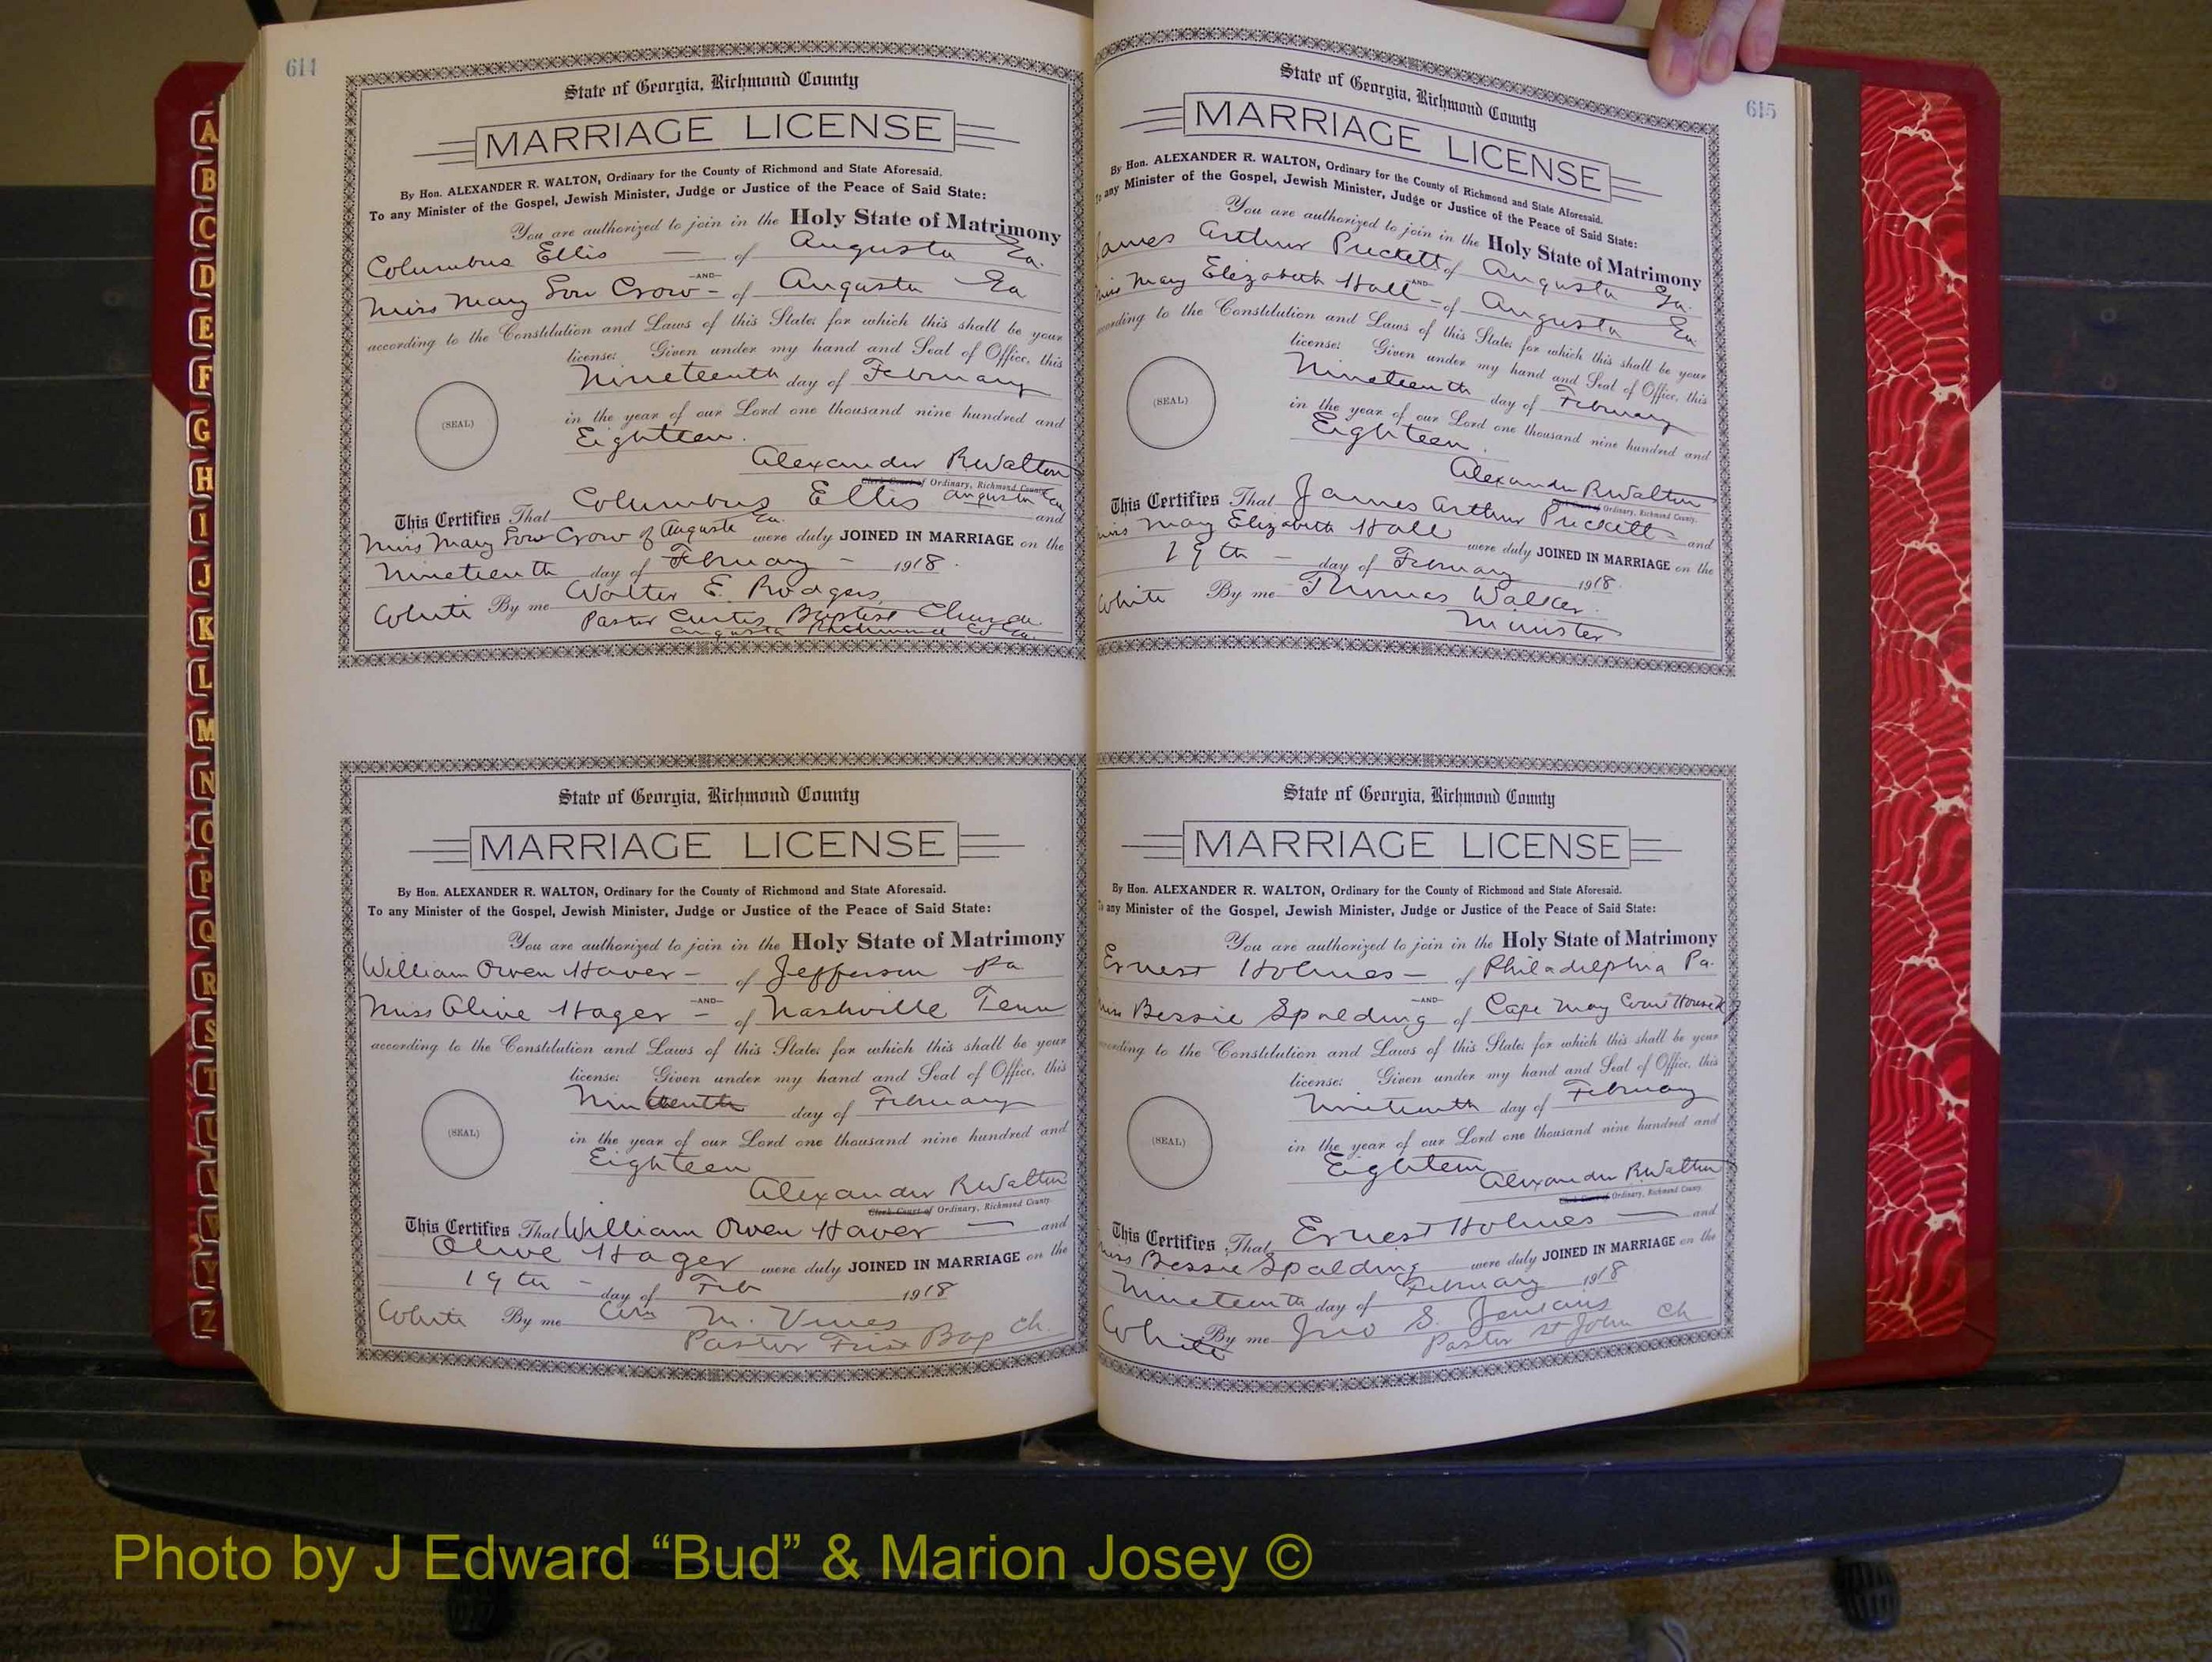 614
State of Georgia, Richmond County
MARRIAGE LICENSE
By Hon. ALEXANDER R. WALTON, Ordinary for the County of Richmond and State Aforesaid.
To any Minister of the Gospel, Jewish Minister, Judge or Justice of the Peace of Said State:
You are authorized to join in the Holy State of Matrimony
Columbus Ellis — of Augusta Ga.
—AND—
Miss Mary Lou Crow - of Augusta Ga
according to the Constitution and Laws of this State; for which this shall be your
license: Given under my hand and Seal of Office, this
Nineteenth day of February
(SEAL)
in the year of our Lord one thousand nine hundred and
Eighteen.
Alexander R Walton
Clerk Court of Ordinary, Richmond County
This Certifies That Columbus Ellis Augusta Ga and
Miss Mary Lou Crow of Augusta Ga. were duly JOINED IN MARRIAGE on the
Nineteenth day of February - 1918.
White By me Walter E. Rodgers
Pastor Curtis Baptist Church
Augusta Richmond Co Ga.
State of Georgia, Richmond County
MARRIAGE LICENSE
By Hon. ALEXANDER R. WALTON, Ordinary for the County of Richmond and State Aforesaid.
To any Minister of the Gospel, Jewish Minister, Judge or Justice of the Peace of Said State:
You are authorized to join in the Holy State of Matrimony
William Owen Haver - of Jefferson Pa
—AND—
Miss Olive Hager - of Nashville Tenn
according to the Constitution and Laws of this State; for which this shall be your
license: Given under my hand and Seal of Office, this
day of February
(SEAL)
in the year of our Lord one thousand nine hundred and
Eighteen
Alexander R Walton
Clerk Court of Ordinary, Richmond County.
This Certifies That William Owen Haver — and
Olive Hager were duly JOINED IN MARRIAGE on the
19th - day of Feb 1918
White By me M. Vines
Pastor Bap Ch.
615
State of Georgia, Richmond County
MARRIAGE LICENSE
By Hon. ALEXANDER R. WALTON, Ordinary for the County of Richmond and State Aforesaid.
To any Minister of the Gospel, Jewish Minister, Judge or Justice of the Peace of Said State:
You are authorized to join in the Holy State of Matrimony
James Arthur Prickett of Augusta Ga.
—AND—
Miss Mary Elizabeth Hall - of Augusta Ga
according to the Constitution and Laws of this State; for which this shall be your
license: Given under my hand and Seal of Office, this
Nineteenth day of February
(SEAL)
in the year of our Lord one thousand nine hundred and
Eighteen.
Alexander R Walton
Ordinary, Richmond County.
This Certifies That James Arthur Prickett - and
Miss Mary Elizabeth Hall were duly JOINED IN MARRIAGE on the
19th - day of February 1918.
White By me Thomas Walker.
Minister
State of Georgia, Richmond County
MARRIAGE LICENSE
By Hon. ALEXANDER R. WALTON, Ordinary for the County of Richmond and State Aforesaid.
To any Minister of the Gospel, Jewish Minister, Judge or Justice of the Peace of Said State:
You are authorized to join in the Holy State of Matrimony
Ernest Holmes - of Philadelphia Pa.
—AND—
Miss Bessie Spalding of Cape May Court House
according to the Constitution and Laws of this State; for which this shall be your
license: Given under my hand and Seal of Office, this
Nineteenth day of February
(SEAL)
in the year of our Lord one thousand nine hundred and
Eighteen
Alexander R Walton
Clerk Court of Ordinary, Richmond County.
This Certifies That Ernest Holmes — and
Miss Bessie Spalding were duly JOINED IN MARRIAGE on the
Nineteenth day of February 1918
White By me Jno S. Jenkins
Pastor St John Ch
A
B
C
D
E
F
G
H
I
J
K
L
M
N
O
P
Q
R
S
T
U
V
W
Y
Z
Photo by J Edward “Bud” & Marion Josey ©